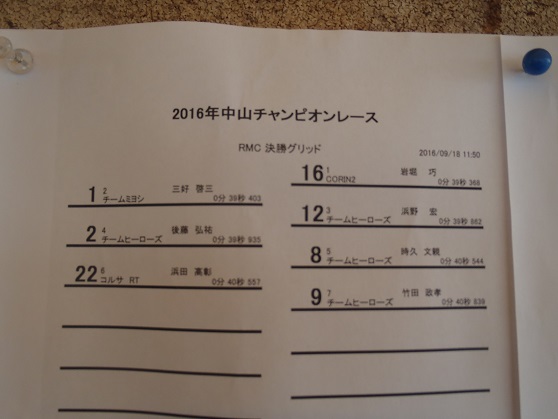 2016年中山チャンピオンレース
RMC 決勝グリッド
2016/09/18 11:50
16 1 岩堀 巧
CORIN2 0分 39秒 368
1 2 三好 啓三
チームミヨシ 0分 39秒 403
12 3 浜野 宏
チームヒーローズ 0分 39秒 862
2 4 後藤 弘祐
チームヒーローズ 0分 39秒 935
8 5 時久 文毅
チームヒーローズ 0分 40秒 544
22 6 浜田 高彰
コルサ RT 0分 40秒 557
9 7 竹田 政孝
チームヒーローズ 0分 40秒 839